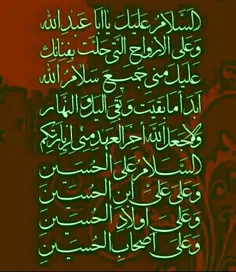 السلام عليك يا ابا عبد الله
وعلى الارواح التي حلت بفنائك
عليك مني جميعا سلام الله
ابدا ما بقيت وبقي الليل والنهار
ولا جعله الله آخر العهد مني لزيارتكم
السلام على الحسين
وعلى علي ابن الحسين
وعلى اولاد الحسين
وعلى اصحاب الحسين